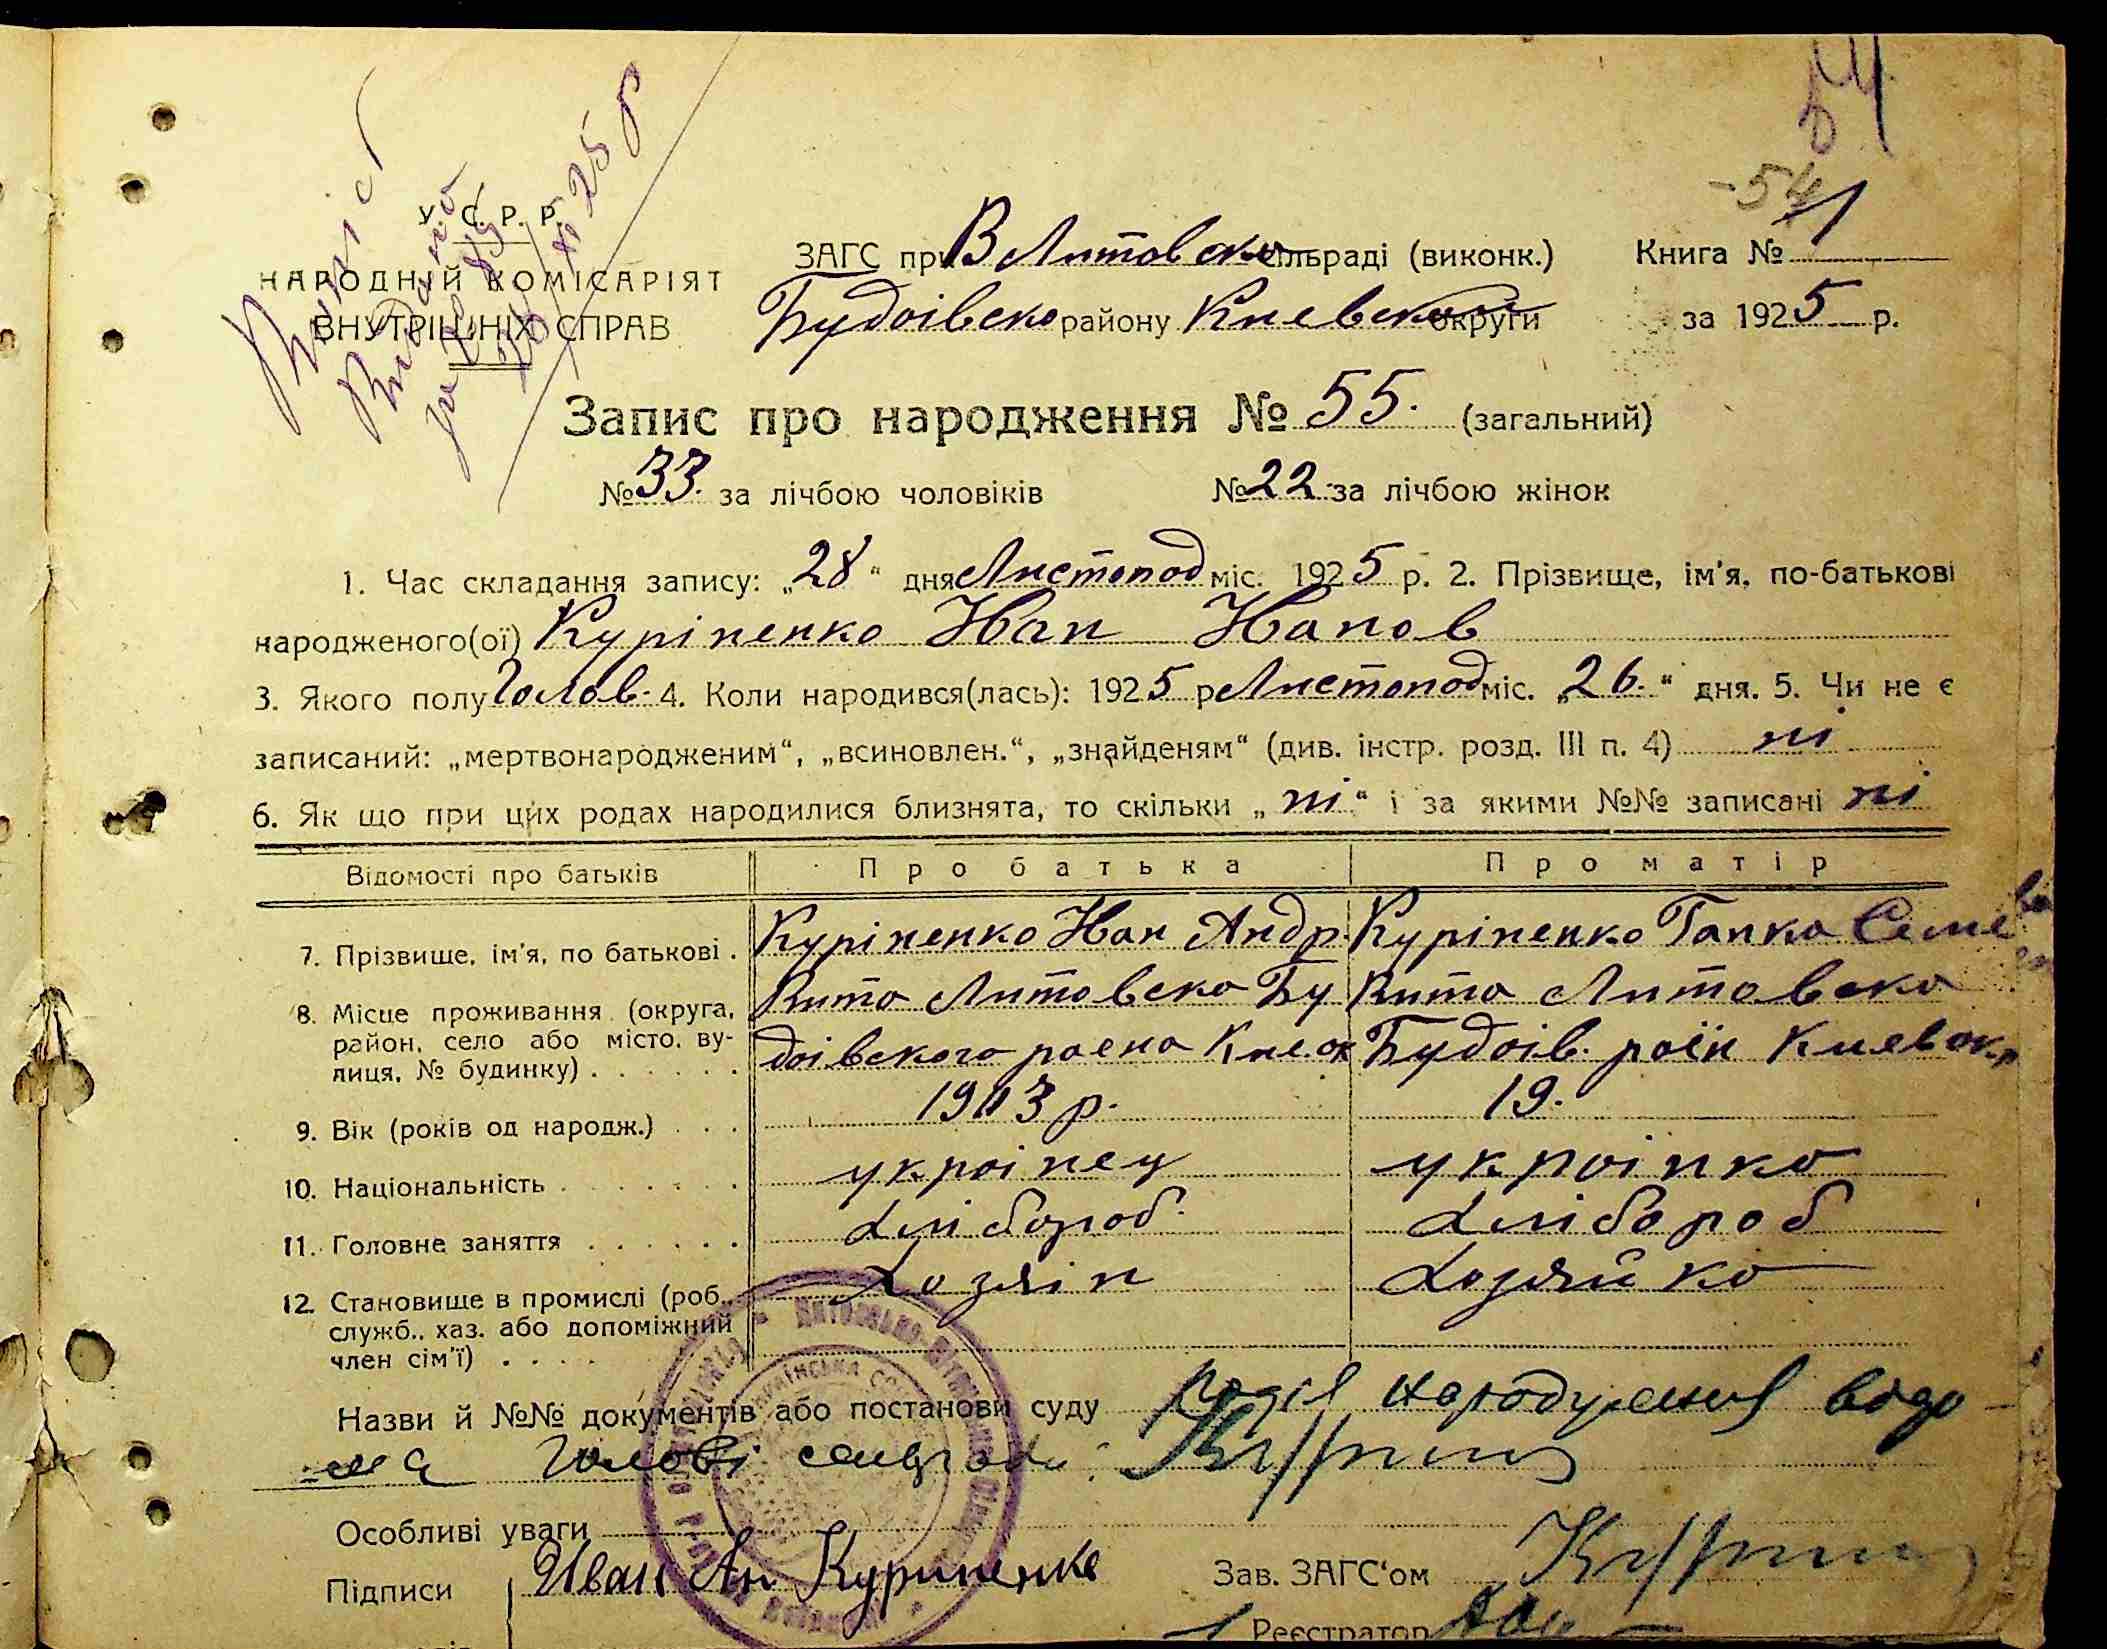 54
-54
У. С. Р. Р.
НАРОДНІЙ КОМІСАРІЯТ
ВНУТРІШНІХ СПРАВ
Випис
Видано
за № 85
28 XI 25 р
ЗАГС при В Литовско сільраді (виконк.) Книга № 1
Будоівско району Киевської округи за 1925 р.
Запис про народження № 55. (загальний)
№ 33. за лічбою чоловіків № 22 за лічбою жінок
1. Час складання запису: „28“ дня Листопод міс. 1925 р. 2. Прізвище, ім'я, по-батькові
народженого(ої) Куріненко Иван Иванов
3. Якого полу Чолов. 4. Коли народився(лась): 1925 р Листопод міс. „26.“ дня. 5. Чи не є
записаний: „мертвонародженим“, „всиновлен.“, „знайденям“ (див. інстр. розд. III п. 4) ні
6. Як що при цих родах народилися близнята, то скільки „ні“ і за якими №№ записані ні
Відомості про батьків Про батька Про матір
7. Прізвище, ім'я, по батькові . Куріненко Иван Андр. Куріненко Гапка Семе
8. Місце проживання (округа, Вита Литовско Бу Вита Литовско
район, село або місто, ву- доівского раена Кие.ок Будоів. раён Киев окр
лиця, № будинку) . . . . . .
9. Вік (років од народж.) . . . 1903 р. 19.
10. Національність . . . . . . . українец українко
11. Головне заняття . . . . . . хлібороб. хлібороб
12. Становище в промислі (роб., хозяін хозяйко
служб., хаз. або допоміжний
член сім'ї) . . . .
Назви й №№ документів або постанови суду подія народження відо
ма голові сільради.
Особливі уваги
Підписи Иван Ан Куриненко Зав. ЗАГС'ом
Реєстратор